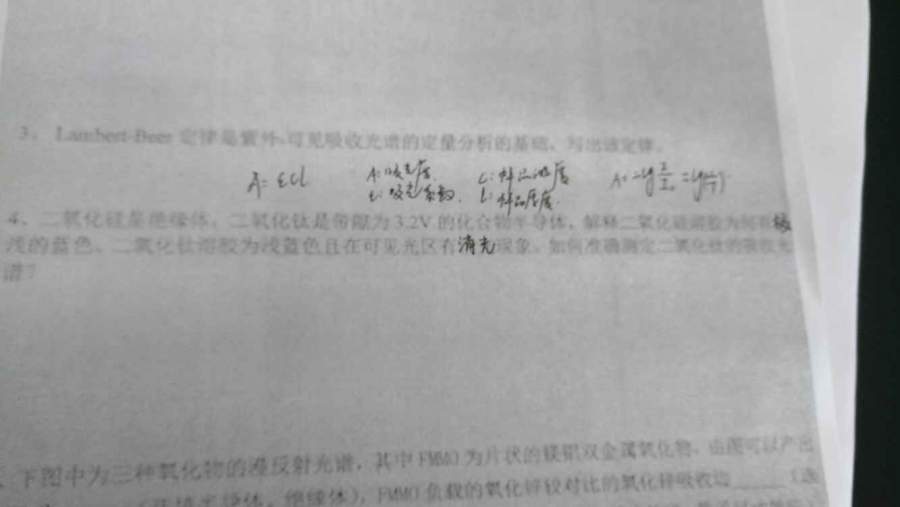 3、Lambert-Beer 定律是紫外-可见吸收光谱的定量分析的基础，写出该定律。
A=εCl A:吸光度 C:样品浓度
ε:吸光系数 l:样品厚度
4、二氧化硅是绝缘体，二氧化钛是带隙为3.2V的化合物半导体，解释二氧化硅溶胶为何有极
浅的蓝色、二氧化钛溶胶为浅蓝色且在可见光区有消光现象。如何准确测定二氧化钛的吸收光
谱？
下图中为三种氧化物的漫反射光谱，其中FMMO为片状的镁铝双金属氧化物，由图可以产出
半导体，绝缘体），FMMO负载的氧化锌较对比的氧化锌吸收边